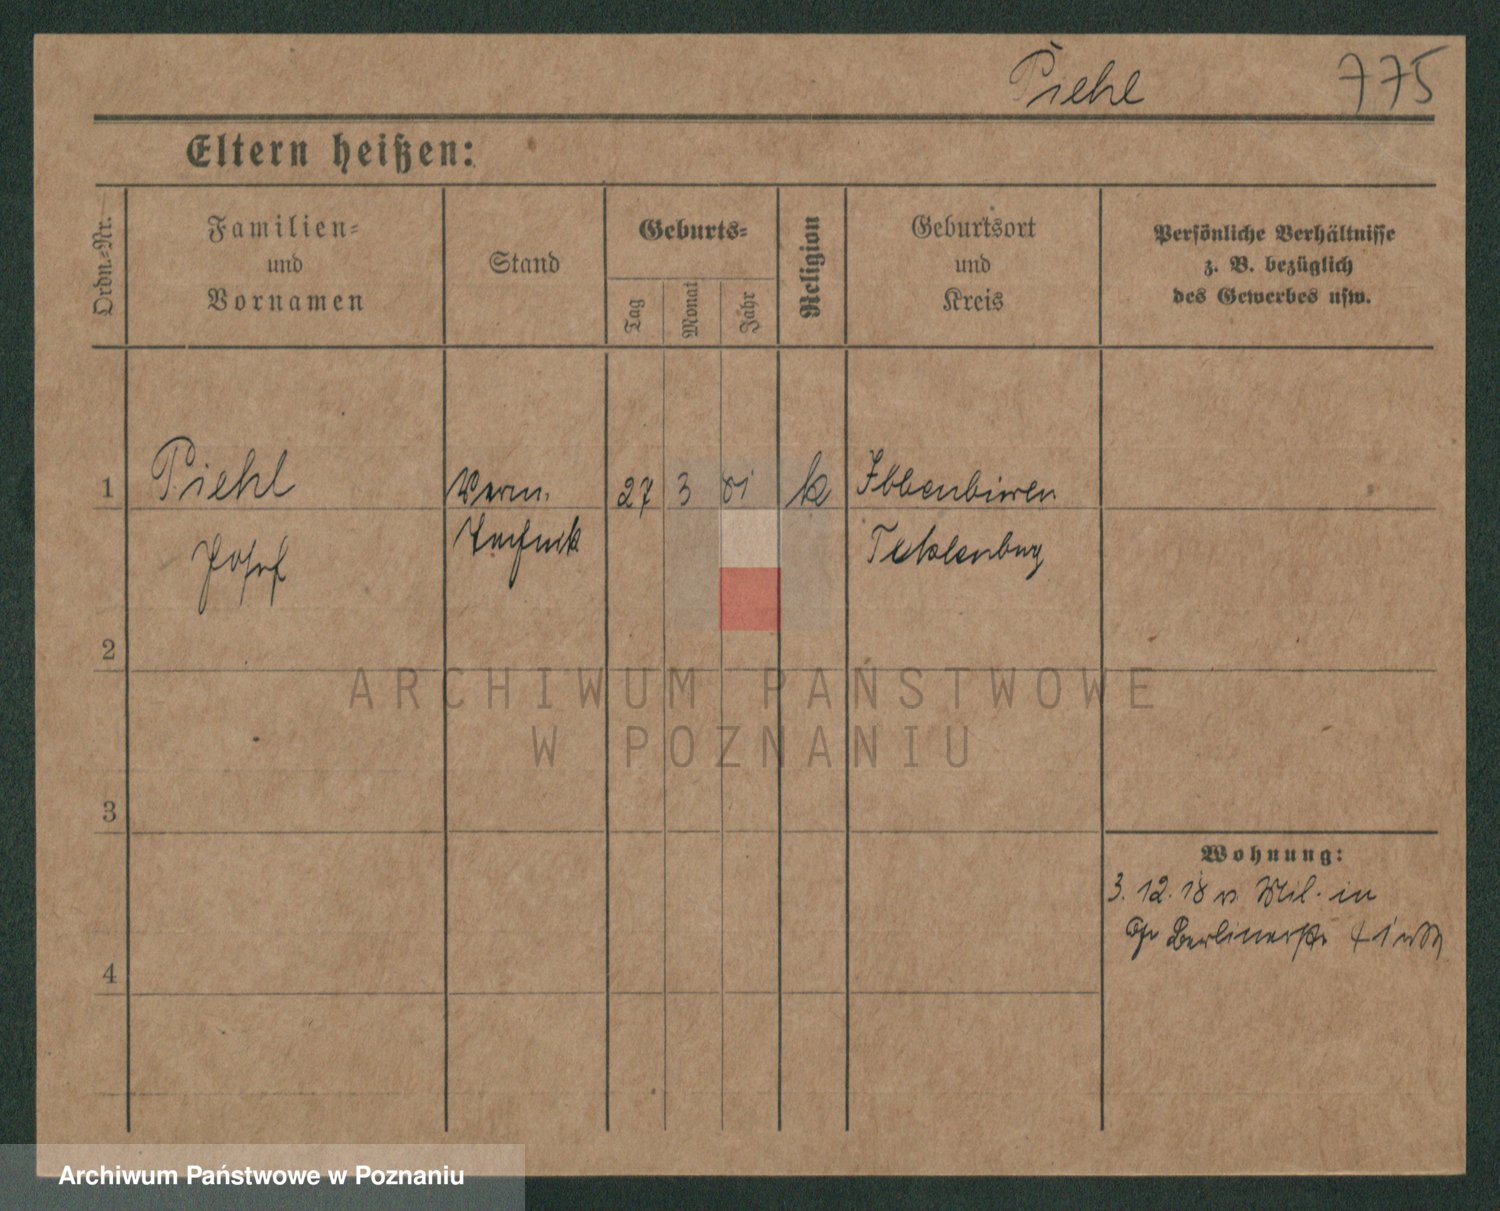 Piehl 775
Eltern heißen:
Ordn.-Nr.
Familien-
und
Vornamen
Stand
Geburts-
Tag
Monat
Jahr
Religion
Geburtsort
und
Kreis
Persönliche Verhältnisse
z. B. bezüglich
des Gewerbes usw.
1 Piehl Verm. 27 3 81 k Ibbenbüren
Josef Technik Tecklenburg
2
3
4
Wohnung:
3. 12. 18 v. Mil. in
Berlinerstr
ARCHIWUM PAŃSTWOWE
W POZNANIU
Archiwum Państwowe w Poznaniu